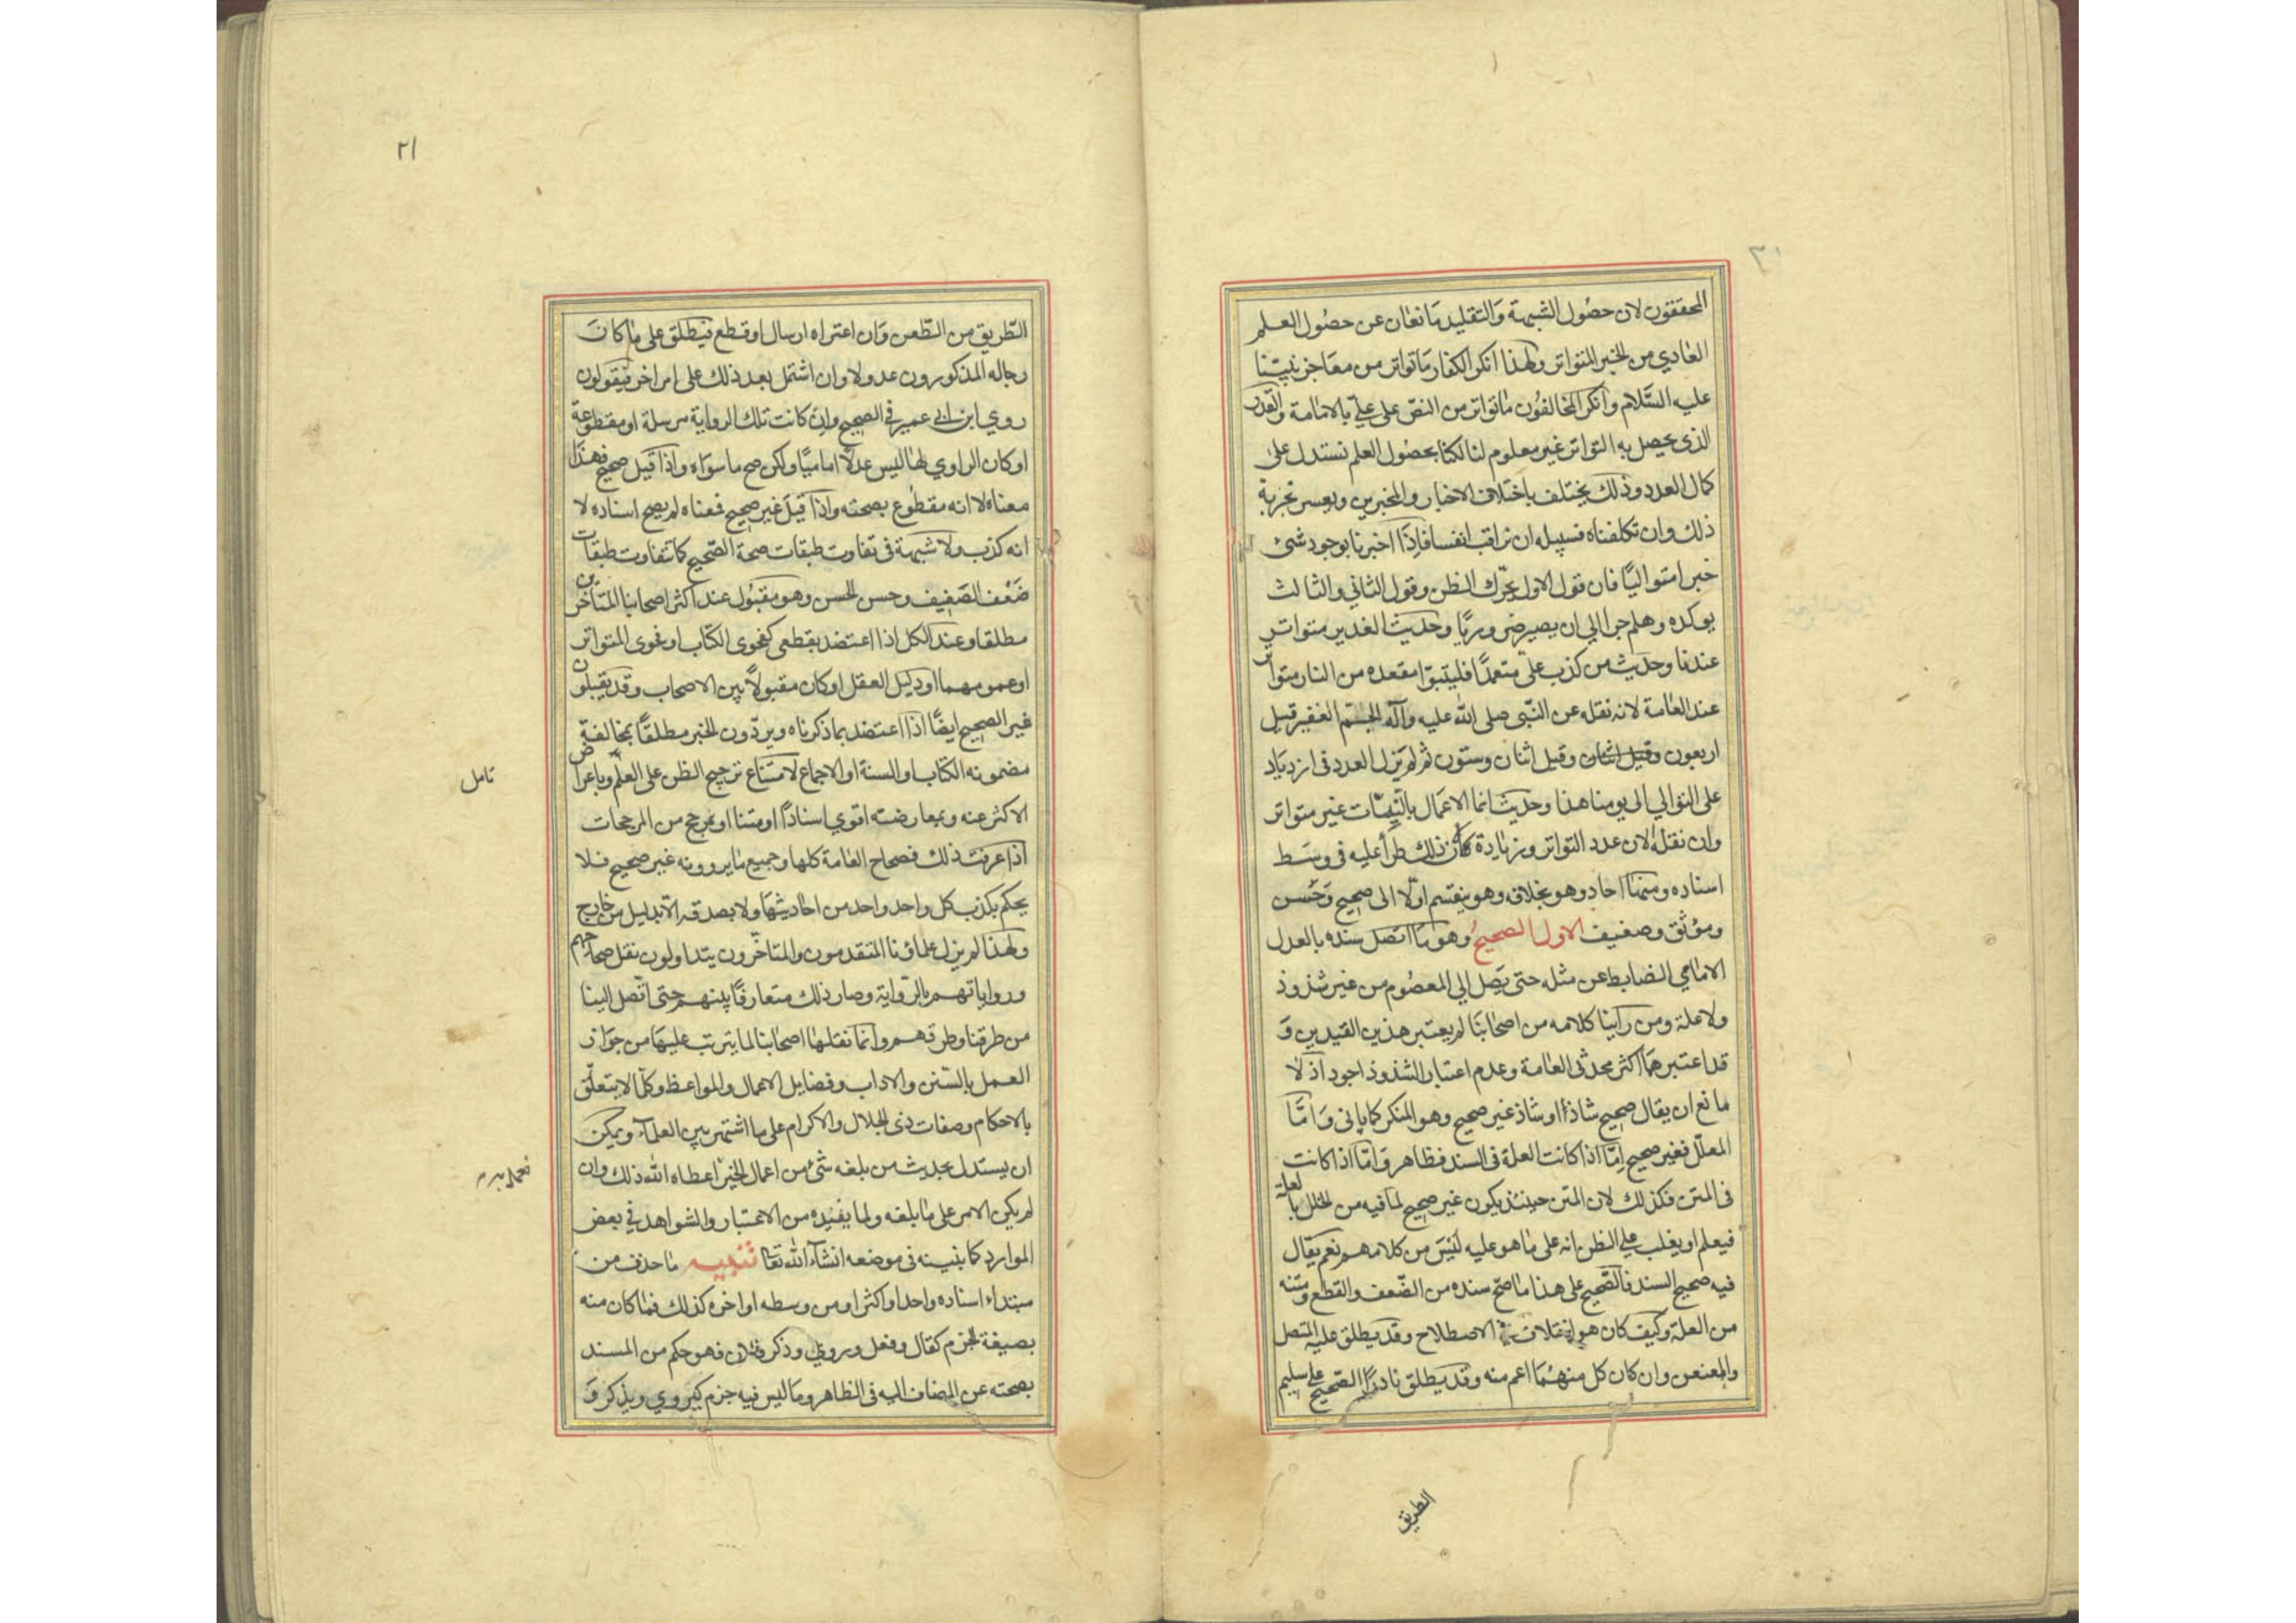 المحققون لان حصول الشبهة والتقليد مانعان عن حصول العلم
العادي من الخبر المتواتر ولهذا انكر الكفار ما تواتر من معاجز نبينا
عليه السلام وانكر المخالفون ماتواتر من النص على علي بالامامة والقدر
الذى يحصل به التواتر غير معلوم لنا لكنا بحصول العلم نستدل على
كمال العدد وذلك يختلف باختلاف الاخبار والمخبرين ويعسر تجربة
ذلك وان تكلفناه فسبيله ان نراقب انفسنا فاذا اخبرنا بوجود شئ
خبرا متواليا فان قول الاول يحرك الظن وقول الثاني والثالث
يوكده وهلم جرا الي ان يصير ضروريا وحديث الغدير متواتر
عندنا وحديث من كذب علي متعمدا فليتبوا مقعده من النار متواتر
عند العامة لانه نقله عن النبي صلى الله عليه وآله الجم الغفير قيل
اربعون وقيل اثنان وقيل اثنان وستون ثم لم يزل العدد في ازدياد
على التوالي الى يومنا هذا وحديث انما الاعمال بالنيات غير متواتر
وان نقله الان عدد التواتر وزيادة لان ذلك طرأ عليه فى وسط
اسناده ومنها احاد وهو بخلافه وهو ينقسم اولا الى صحيح وحسن
وموثق وضعيف الاول الصحيح وهو ما اتصل سنده بالعدل
الامامي الضابط عن مثله حتى يصل الي المعصوم من غير شذوذ
ولا علة ومن راينا كلامه من اصحابنا لم يعتبر هذين القيدين و
قد اعتبرهما اكثر محدثى العامة وعدم اعتبار الشذوذ اجود اذ لا
مانع ان يقال صحيح شاذ او شاذ غير صحيح وهو المنكر كما ياتى واما
المعلل فغير صحيح اما اذا كانت العلة فى السند فظاهر واما اذا كانت
فى المتن فكذلك لان المتن حينئذ يكون غير صحيح لما فيه من الخلل بالعلة
فيعلم او يغلب على الظن انه على ما هو عليه ليس من كلامهم نعم يقال
فيه صحيح السند فالصحيح على هذا ما صح سنده من الضعف والقطع ومتنه
من العلة وكيف كان هو اختلاف في الاصطلاح وقد يطلق عليه المتصل
والمعنعن وان كان كل منهما اعم منه وقد يطلق نادرا الصحيح على سليم
الطريق
٢١
الطريق من الطعن وان اعتراه ارسال او قطع فيطلق على ما كان
رجاله المذكورون عدولا وان اشتمل بعد ذلك على امر اخر فيقولون
روي ابن ابي عمير فى الصحيح وان كانت تلك الرواية مرسلة او مقطوعة
او كان الراوي لها ليس عدلا اماميا ولكن صح ما سواه واذا قيل صحيح فهذا
معناه لا انه مقطوع بصحته واذا قيل غير صحيح فمعناه لم يصح اسناده لا
انه كذب ولا شبهة فى تفاوت طبقات صحة الصحيح كما تفاوت طبقات
ضعف الضعيف وحسن الحسن وهو مقبول عند اكثر اصحابنا المتاخرين
مطلقا وعند الكل اذا اعتضد بقطعى كفحوى الكتاب او فحوى المتواتر
او عمومهما او دليل العقل او كان مقبولا بين الاصحاب وقد يقبلون
غير الصحيح ايضا اذا اعتضد بما ذكرناه ويردون الخبر مطلقا بمخالفة
مضمونه الكتاب او السنة او الاجماع لامتناع ترجيح الظن على العلم وباعراض
الاكثر عنه وبمعارضته اقوي اسنادا او متنا او بمرجح من المرجحات
اذا عرفت ذلك فصحاح العامة كلها وجميع ما يروونه غير صحيح فلا
يحكم بكذب كل واحد واحد من احاديثها ولا بصدقه الا بدليل من خارج
ولهذا لم يزل علماؤنا المتقدمون والمتاخرون يتداولون نقل صحاحهم
ورواياتهم بالرواية وصار ذلك متعارفا بينهم حتى اتصل الينا
من طرقنا وطرقهم وانما نقلها اصحابنا لما يترتب عليها من جواز
العمل بالسنن والاداب وفضايل الاعمال والمواعظ وكلما لا يتعلق
بالاحكام وصفات ذى الجلال والاكرام على ما اشتهر بين العلماء ويمكن
ان يستدل بحديث من بلغه شئ من اعمال الخير اعطاه الله ذلك وان
لم يكن الامر على ما بلغه ولما يفيده من الاعتبار والشواهد في بعض
الموارد كما نبينه فى موضعه انشاء الله تعا تنبيه ما حذف من
مبتداء اسناده واحد او اكثر او من وسطه او اخره كذلك فما كان منه
بصيغة الجزم كقال وفعل وروي وذكر فلان فهو حكم من المسند
بصحته عن المضاف اليه فى الظاهر وما ليس فيه جزم كيروي ويذكر و
تامل